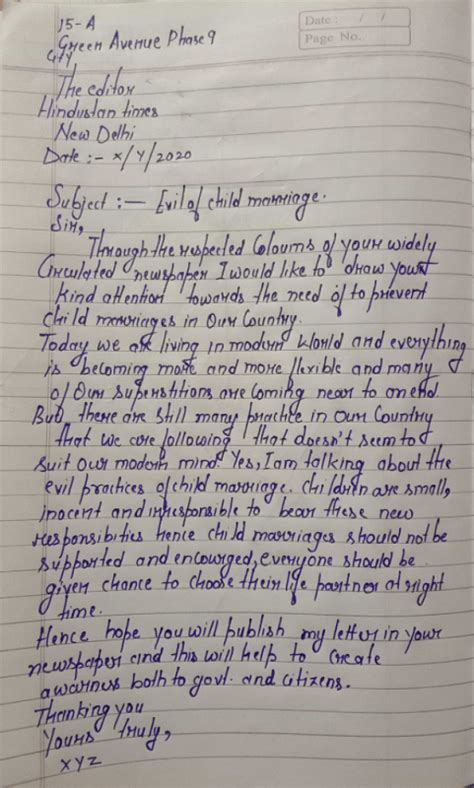 15-A
Green Avenue Phase 9
City
Date : / /
Page No.
The editor
Hindustan times
New Delhi
Date :- x/y/2020
Subject :- Evil of child marriage.
Sir,
Through the respected Coloums of your widely
Circulated newspaper I would like to draw your
kind attention towards the need of to prevent
child marriages in our Country.
Today we are living in modern world and everything
is becoming more and more flexible and many
of Our superstitions are coming near to an end.
But, there are still many practice in our Country
that we are following that doesn't seem to
suit our modern mind. Yes, I am talking about the
evil practices of child marriage. Children are small,
inocent and irresponsible to bear these new
responsibities hence child marriages should not be
supported and encourged, everyone should be
given chance to choose their life partner at right
time.
Hence hope you will publish my letter in your
newspaper and this will help to create
awarness both to govt. and citizens.
Thanking you
Yours truly,
XYZ